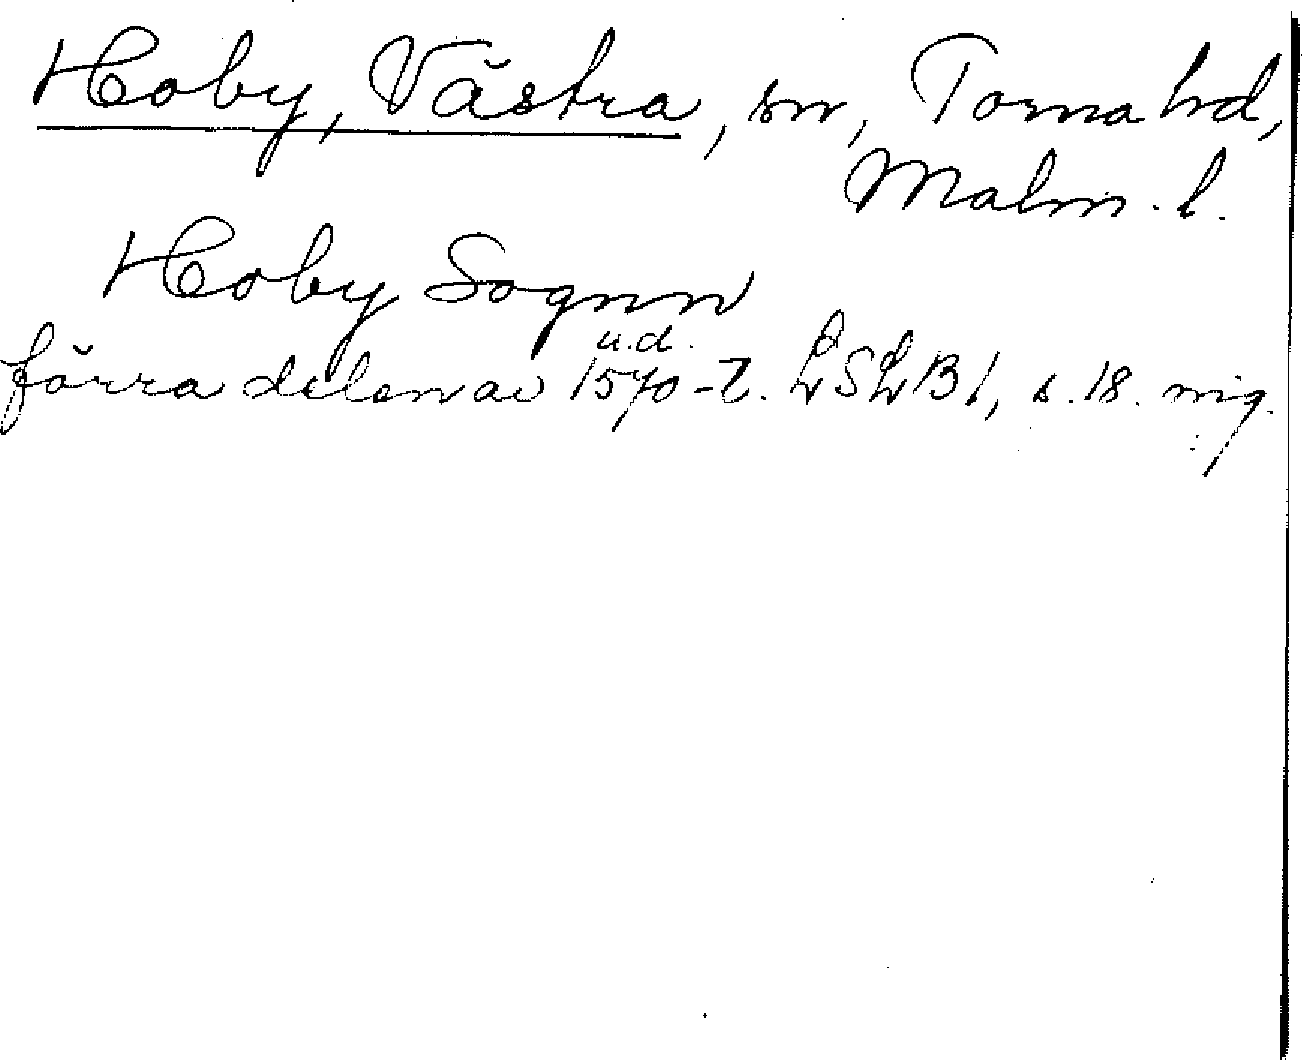 Hoby, Västra, sn, Torna hd,
Malm. l.
Hoby Sognn
u.d.
förra delen av 1570-t. LSLB1, s. 18. nig.